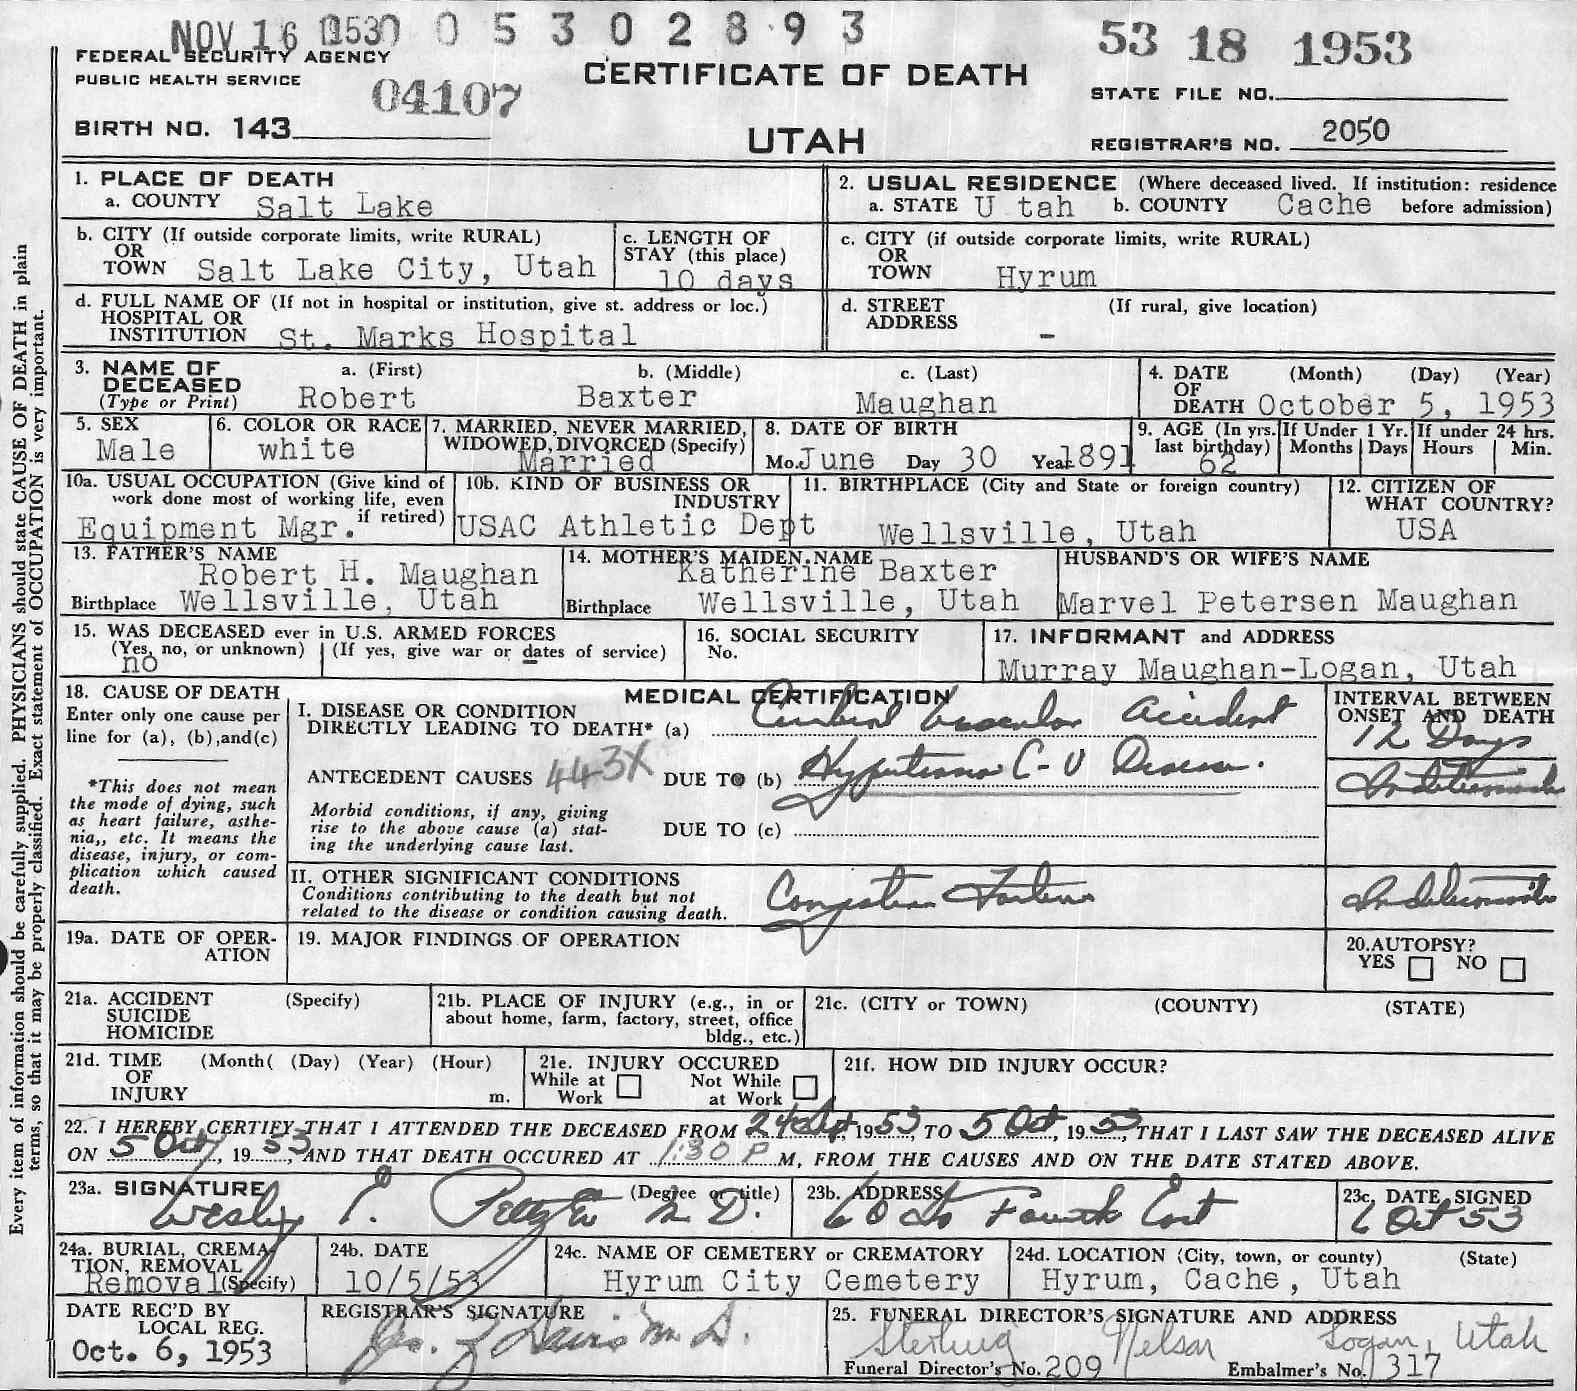 NOV 16 1953 0 0 5 3 0 2 8 9 3
53 18 1953
FEDERAL SECURITY AGENCY
PUBLIC HEALTH SERVICE
04107
CERTIFICATE OF DEATH
STATE FILE NO.
BIRTH NO. 143
UTAH
REGISTRAR'S NO. 2050
Every item of information should be carefully supplied. PHYSICIANS should state CAUSE OF DEATH in plain
terms, so that it may be properly classified. Exact statement of OCCUPATION is very important.
1. PLACE OF DEATH
a. COUNTY Salt Lake
2. USUAL RESIDENCE (Where deceased lived. If institution: residence
a. STATE U tah b. COUNTY Cache before admission)
b. CITY (If outside corporate limits, write RURAL)
OR
TOWN Salt Lake City, Utah
c. LENGTH OF
STAY (this place)
10 days
c. CITY (if outside corporate limits, write RURAL)
OR
TOWN Hyrum
d. FULL NAME OF (If not in hospital or institution, give st. address or loc.)
HOSPITAL OR
INSTITUTION St. Marks Hospital
d. STREET (If rural, give location)
ADDRESS -
3. NAME OF a. (First) b. (Middle) c. (Last)
DECEASED
(Type or Print) Robert Baxter Maughan
4. DATE (Month) (Day) (Year)
OF
DEATH October 5, 1953
5. SEX
Male
6. COLOR OR RACE
white
7. MARRIED, NEVER MARRIED,
WIDOWED, DIVORCED (Specify)
Married
8. DATE OF BIRTH
Mo. June Day 30 Year 1891
9. AGE (In yrs.
last birthday)
62
If Under 1 Yr.
Months Days
If under 24 hrs.
Hours Min.
10a. USUAL OCCUPATION (Give kind of
work done most of working life, even
if retired)
Equipment Mgr.
10b. KIND OF BUSINESS OR
INDUSTRY
USAC Athletic Dept
11. BIRTHPLACE (City and State or foreign country)
Wellsville, Utah
12. CITIZEN OF
WHAT COUNTRY?
USA
13. FATHER'S NAME
Robert H. Maughan
Birthplace Wellsville, Utah
14. MOTHER'S MAIDEN NAME
Katherine Baxter
Birthplace Wellsville, Utah
HUSBAND'S OR WIFE'S NAME
Marvel Petersen Maughan
15. WAS DECEASED ever in U.S. ARMED FORCES
(Yes, no, or unknown) (If yes, give war or dates of service)
no -
16. SOCIAL SECURITY
No.
17. INFORMANT and ADDRESS
Murray Maughan-Logan, Utah
18. CAUSE OF DEATH
Enter only one cause per
line for (a), (b),and(c)
*This does not mean
the mode of dying, such
as heart failure, asthe-
nia,, etc. It means the
disease, injury, or com-
plication which caused
death.
MEDICAL CERTIFICATION
I. DISEASE OR CONDITION
DIRECTLY LEADING TO DEATH* (a) Cerebral Vascular Accident
ANTECEDENT CAUSES 443X DUE TO (b) Hypertensive C-V Disease.
Morbid conditions, if any, giving
rise to the above cause (a) stat-
ing the underlying cause last.
DUE TO (c)
II. OTHER SIGNIFICANT CONDITIONS
Conditions contributing to the death but not
related to the disease or condition causing death.
Congestive Failure
INTERVAL BETWEEN
ONSET AND DEATH
12 Days
Indeterminate
Indeterminate
19a. DATE OF OPER-
ATION
19. MAJOR FINDINGS OF OPERATION
20.AUTOPSY?
YES NO
21a. ACCIDENT (Specify)
SUICIDE
HOMICIDE
21b. PLACE OF INJURY (e.g., in or
about home, farm, factory, street, office
bldg., etc.)
21c. (CITY or TOWN) (COUNTY) (STATE)
21d. TIME (Month( (Day) (Year) (Hour)
OF
INJURY m.
21e. INJURY OCCURED
While at Not While
Work at Work
21f. HOW DID INJURY OCCUR?
22. I HEREBY CERTIFY THAT I ATTENDED THE DECEASED FROM 24 Sept, 1953, TO 5 Oct, 1953, THAT I LAST SAW THE DECEASED ALIVE
ON 5 Oct, 1953, AND THAT DEATH OCCURED AT 1:30 P M, FROM THE CAUSES AND ON THE DATE STATED ABOVE.
23a. SIGNATURE (Degree or title)
Wesley E. M D.
23b. ADDRESS
60 So Fourth East
23c, DATE SIGNED
6 Oct 53
24a. BURIAL, CREMA-
TION, REMOVAL
Removal (Specify)
24b. DATE
10/5/53
24c. NAME OF CEMETERY or CREMATORY
Hyrum City Cemetery
24d. LOCATION (City, town, or county) (State)
Hyrum, Cache, Utah
DATE REC'D BY
LOCAL REG.
Oct. 6, 1953
REGISTRAR'S SIGNATURE
Davis M. D.
25. FUNERAL DIRECTOR'S SIGNATURE AND ADDRESS
Sterling Nelson Logan, Utah
Funeral Director's No. 209 Embalmer's No. 317